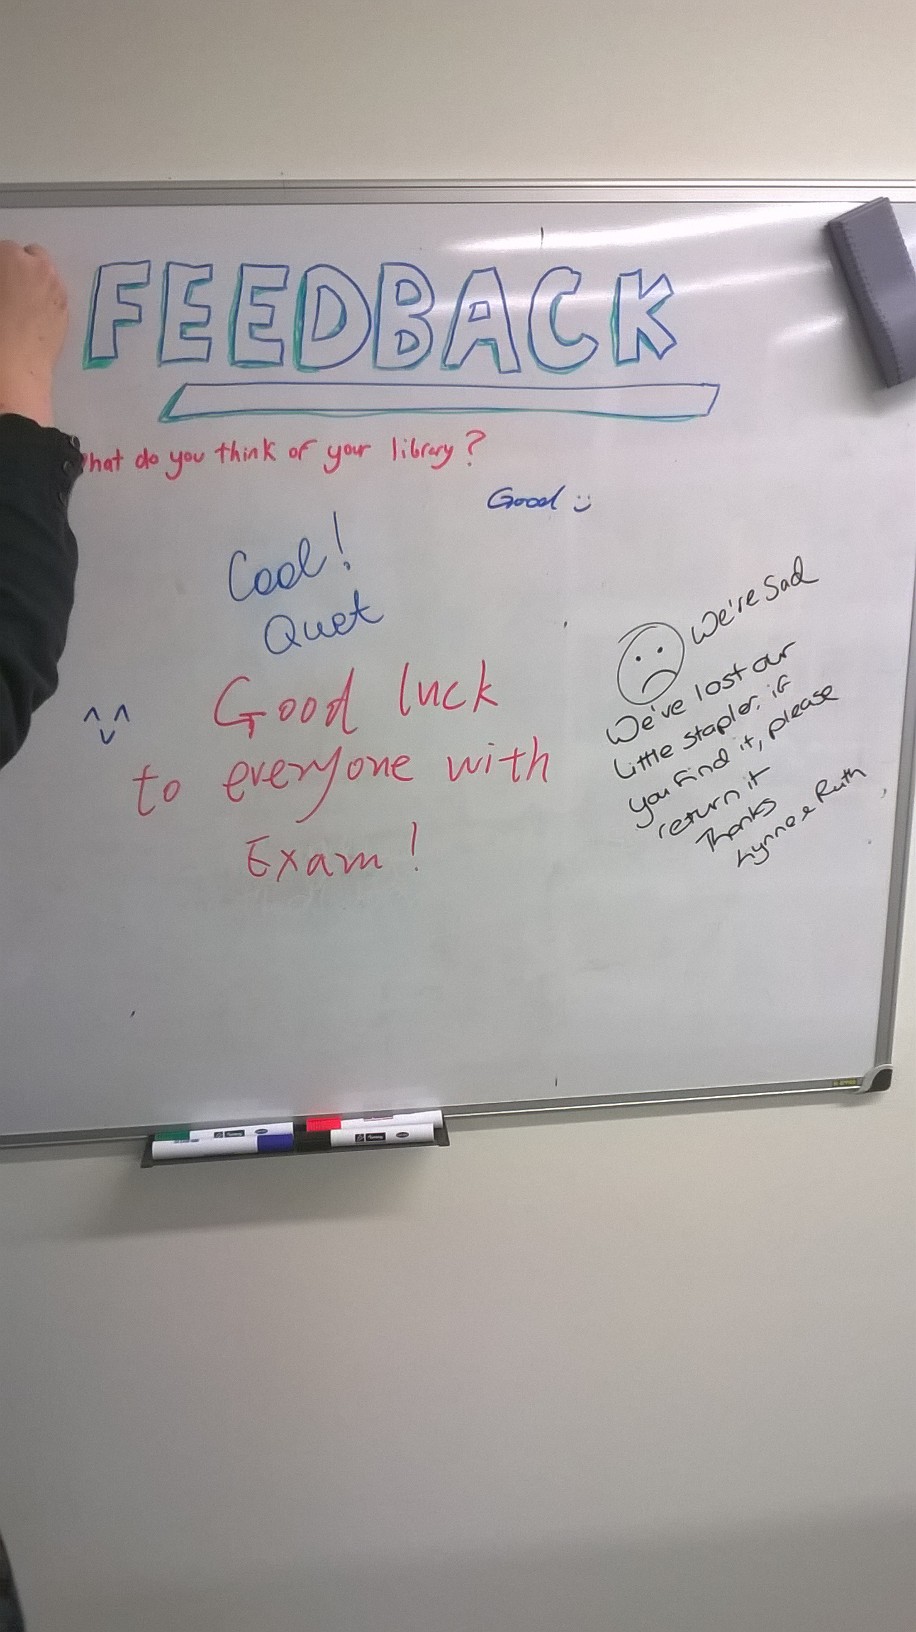 FEEDBACK
hat do you think of your library?
Good :)
Cool!
Quet
Good luck
to everyone with
Exam!
We're Sad
We've lost our
little stapler. if
you find it, please
return it
Thanks
Lynne & Ruth